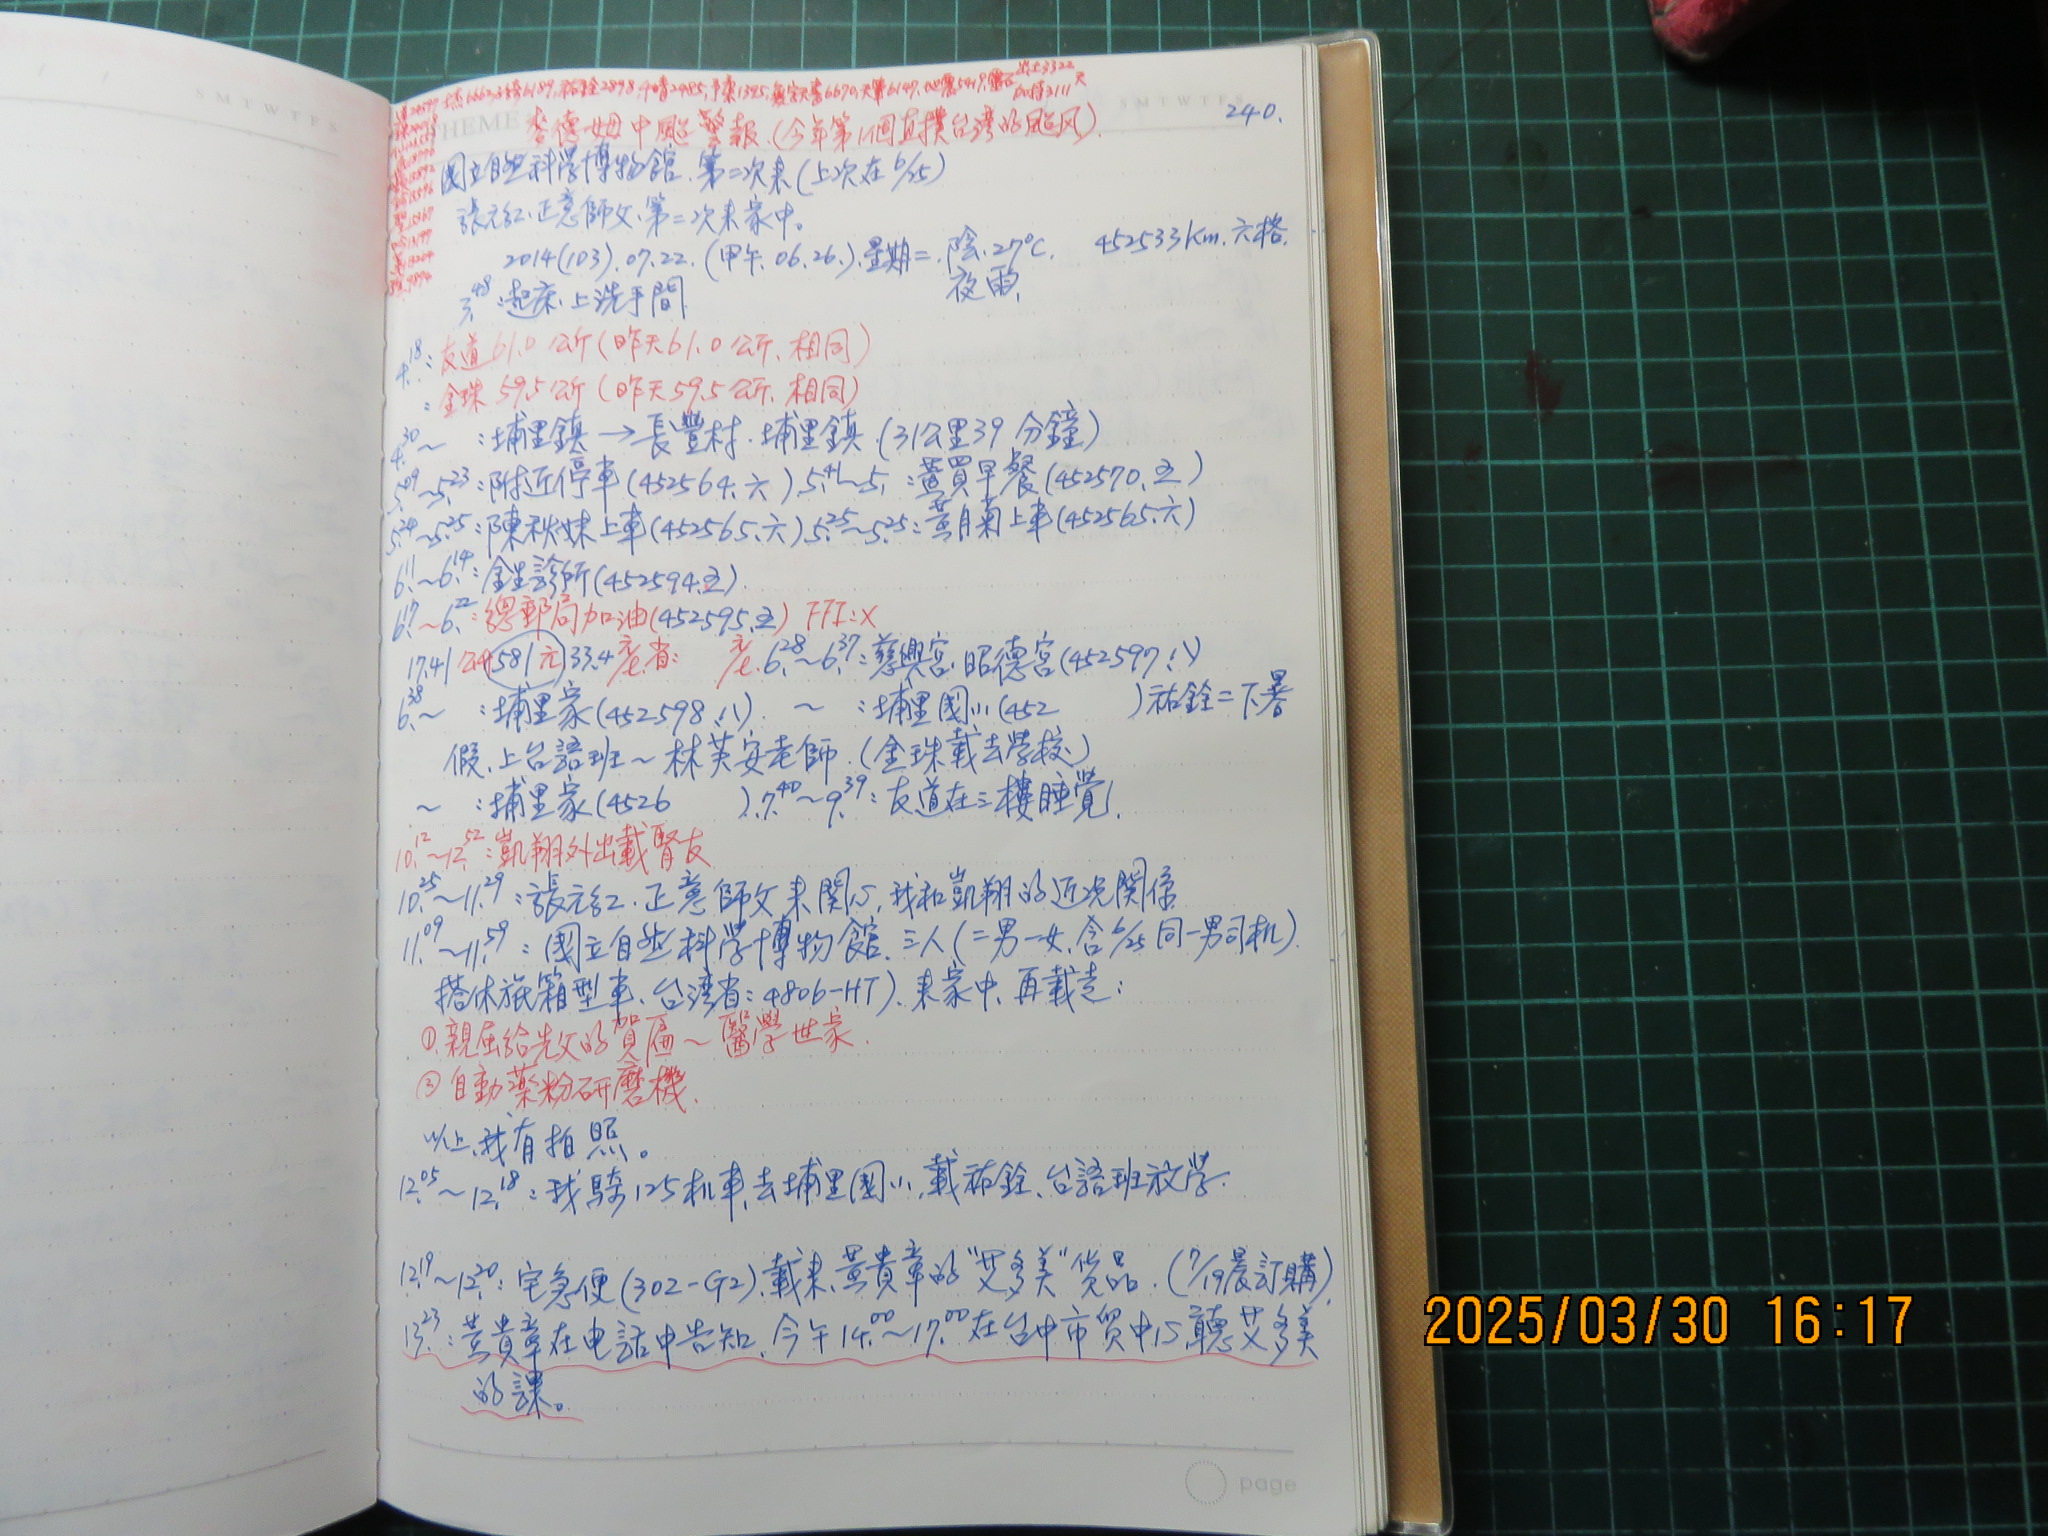 SMTWTFS
THEME
SMTWTFS
240.
麥德姆中颱警報.(今年第1個直撲台湾的颱风).
國立自然科學博物館.第二次來(上次在6/25)
張元紅.正意師父.第二次來家中。
2014(103).07.22.(甲午.06.26.).星期二.陰.27℃. 452533Km.六格.
夜雨.
3.48:起床.上洗手間.
4.18:友道61.0公斤(昨天61.0公斤.相同)
:金珠59.5公斤(昨天59.5公斤.相同)
4.30~ :埔里鎮→長豐村.埔里鎮.(31公里39分鐘)
5.09~5.23:附近停車(452564.六).5.41~5. :買早餐(452570.五)
5.24~5.25:陳秋妹上車(452565.六).5.25~5.25:黃月菊上車(452565.六)
6.11~6.14:金生診所(452594.五).
6.17~6.22:總郵局加油(452595.五) FFI:X
17.41公升581元33.4 6.28~6.37:慈興宮.昭德宮(452597.八)
6.38~ :埔里家(452598.八). ~ :埔里國小(452 )祐銓=下暑
假.上台語班~林芙安老師.(金珠載去學校)
~ :埔里家(4526 ).7.40~9.39:友道在三樓睡覺.
10.12~12.52:凱翔外出載腎友.
10.25~11.29:張元紅.正意師父來関心,我和凱翔的近況関係
11.09~11.59:國立自然科學博物館.三人(二男一女.含6/25同一男司机).
搭休旅箱型車.台湾省:4806-HT).來家中.再載走:
①.親屈給先父的賀匾~醫學世家.
②自動藥粉研磨機.
以上.我有拍照。
12.05~12.18:我騎125机車,去埔里國小,載祐銓.台語班放學.
12.19~12.20:宅急便(302-G2).載來.黃貴章的"艾多美"貨品.(7/19晨訂購).
13.23:黃貴章在电話中告知.今午14.00~17.00在台中市貿中心聽艾多美
的課。
page
2025/03/30 16:17